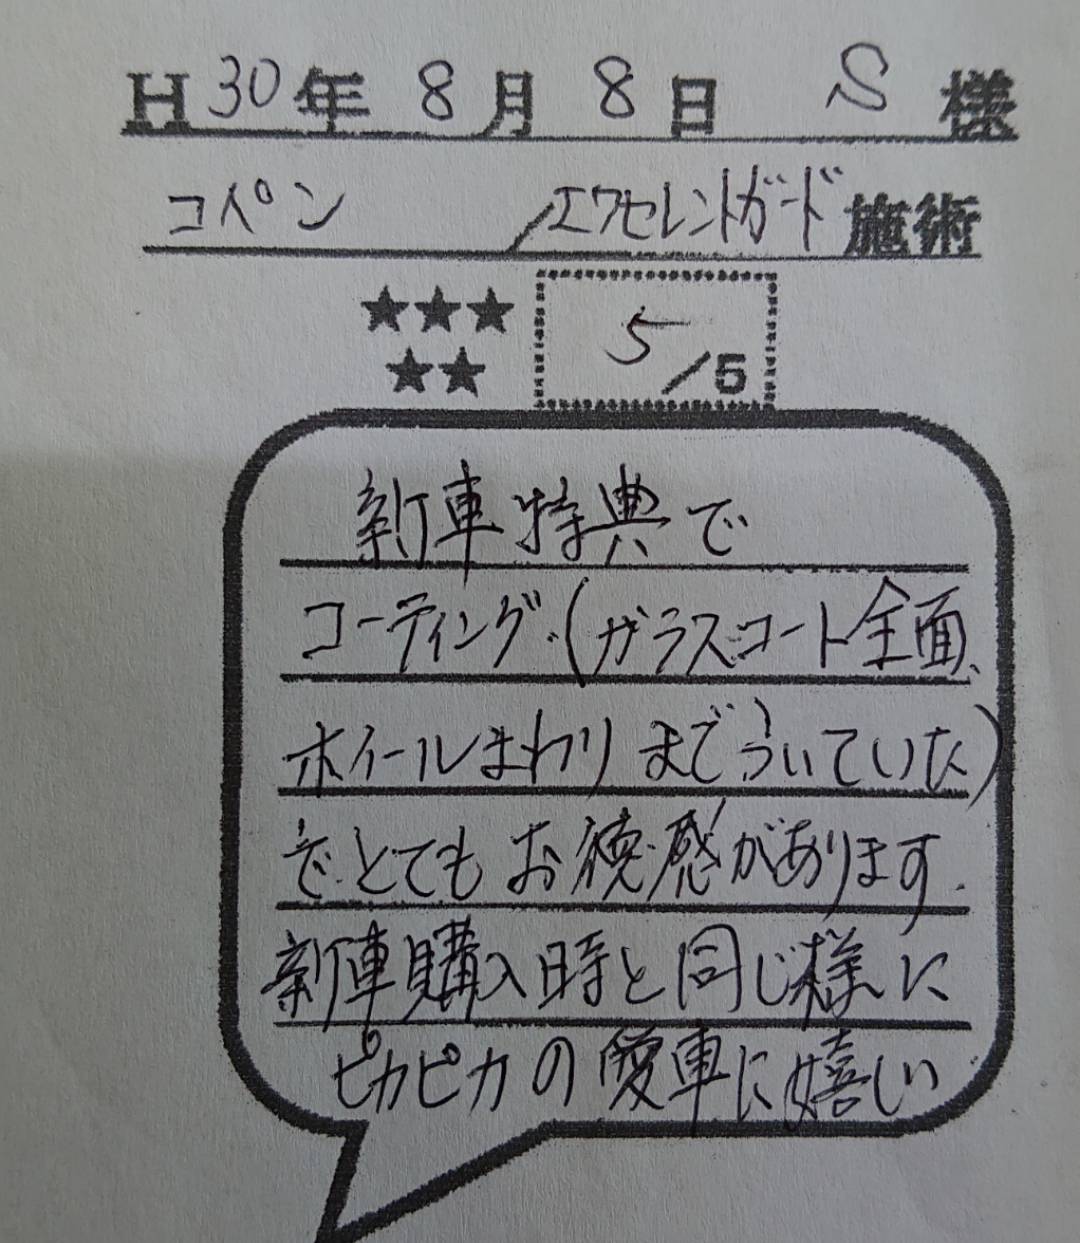 H30年 8月 8日 S様
コペン / エクセレントガード施術
★★★
★★
5/5
新車特典で
コーティング(ガラスコート全面、
ホイールまわりまでういていた)
でとてもお得感があります.
新車購入時と同じ様に
ピカピカの愛車に嬉しい